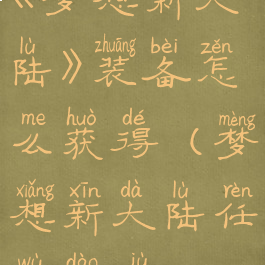 《梦想新大
lù zhuāng bèi zěn
陆》装备怎
me huò dé mèng
么获得（梦
xiǎng xīn dà lù rèn
想新大陆任
wù dào jù